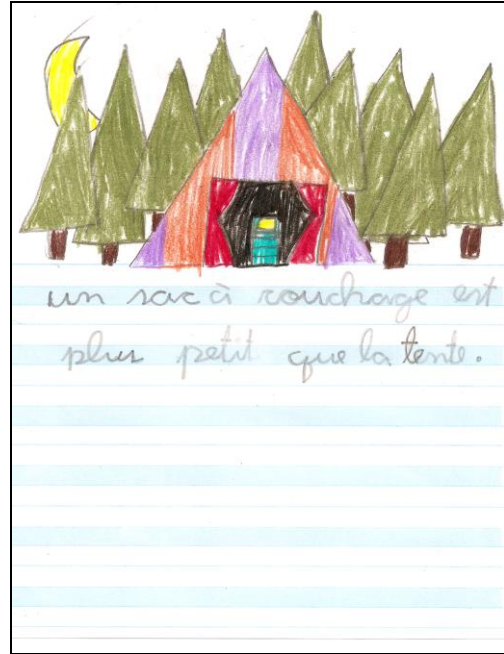 un sac à couchage est
plus petit que la tente.